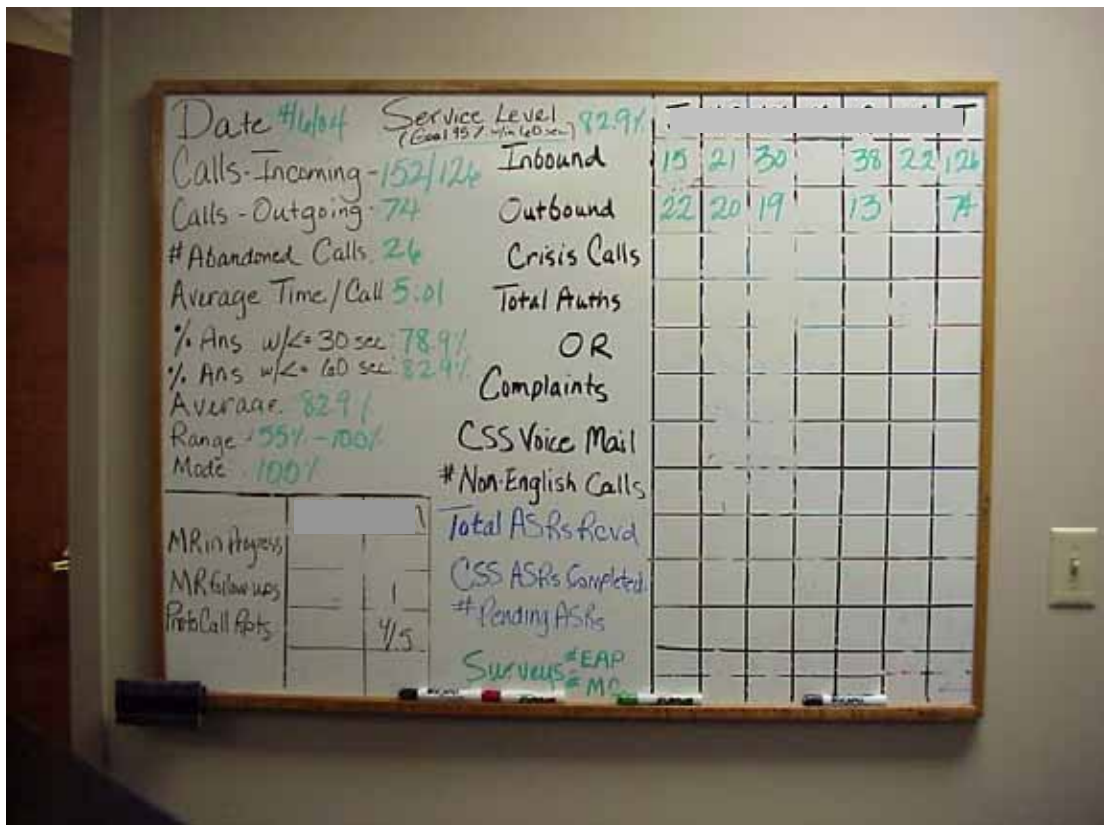 Date 4/6/04 Service Level 82.9%
(Goal 95% w/in 60 sec)
Calls-Incoming - 152/126
Calls - Outgoing - 74
# Abandoned Calls 26
Average Time/Call 5.01
% Ans w/<= 30 sec: 78.9%
% Ans w/<= 60 sec: 82.9%
Average 82.9%
Range 55% - 100%
Mode 100%
MR in Progress
MR Follow ups 1
ProtoCall Rpts 4/5
Inbound 15 21 30 38 22 126
Outbound 22 20 19 13 74
Crisis Calls
Total Auths
OR
Complaints
CSS Voice Mail
# Non-English Calls
Total ASRs Rcvd
CSS ASRs Completed
# Pending ASRs
Surveys # EAP
# MC